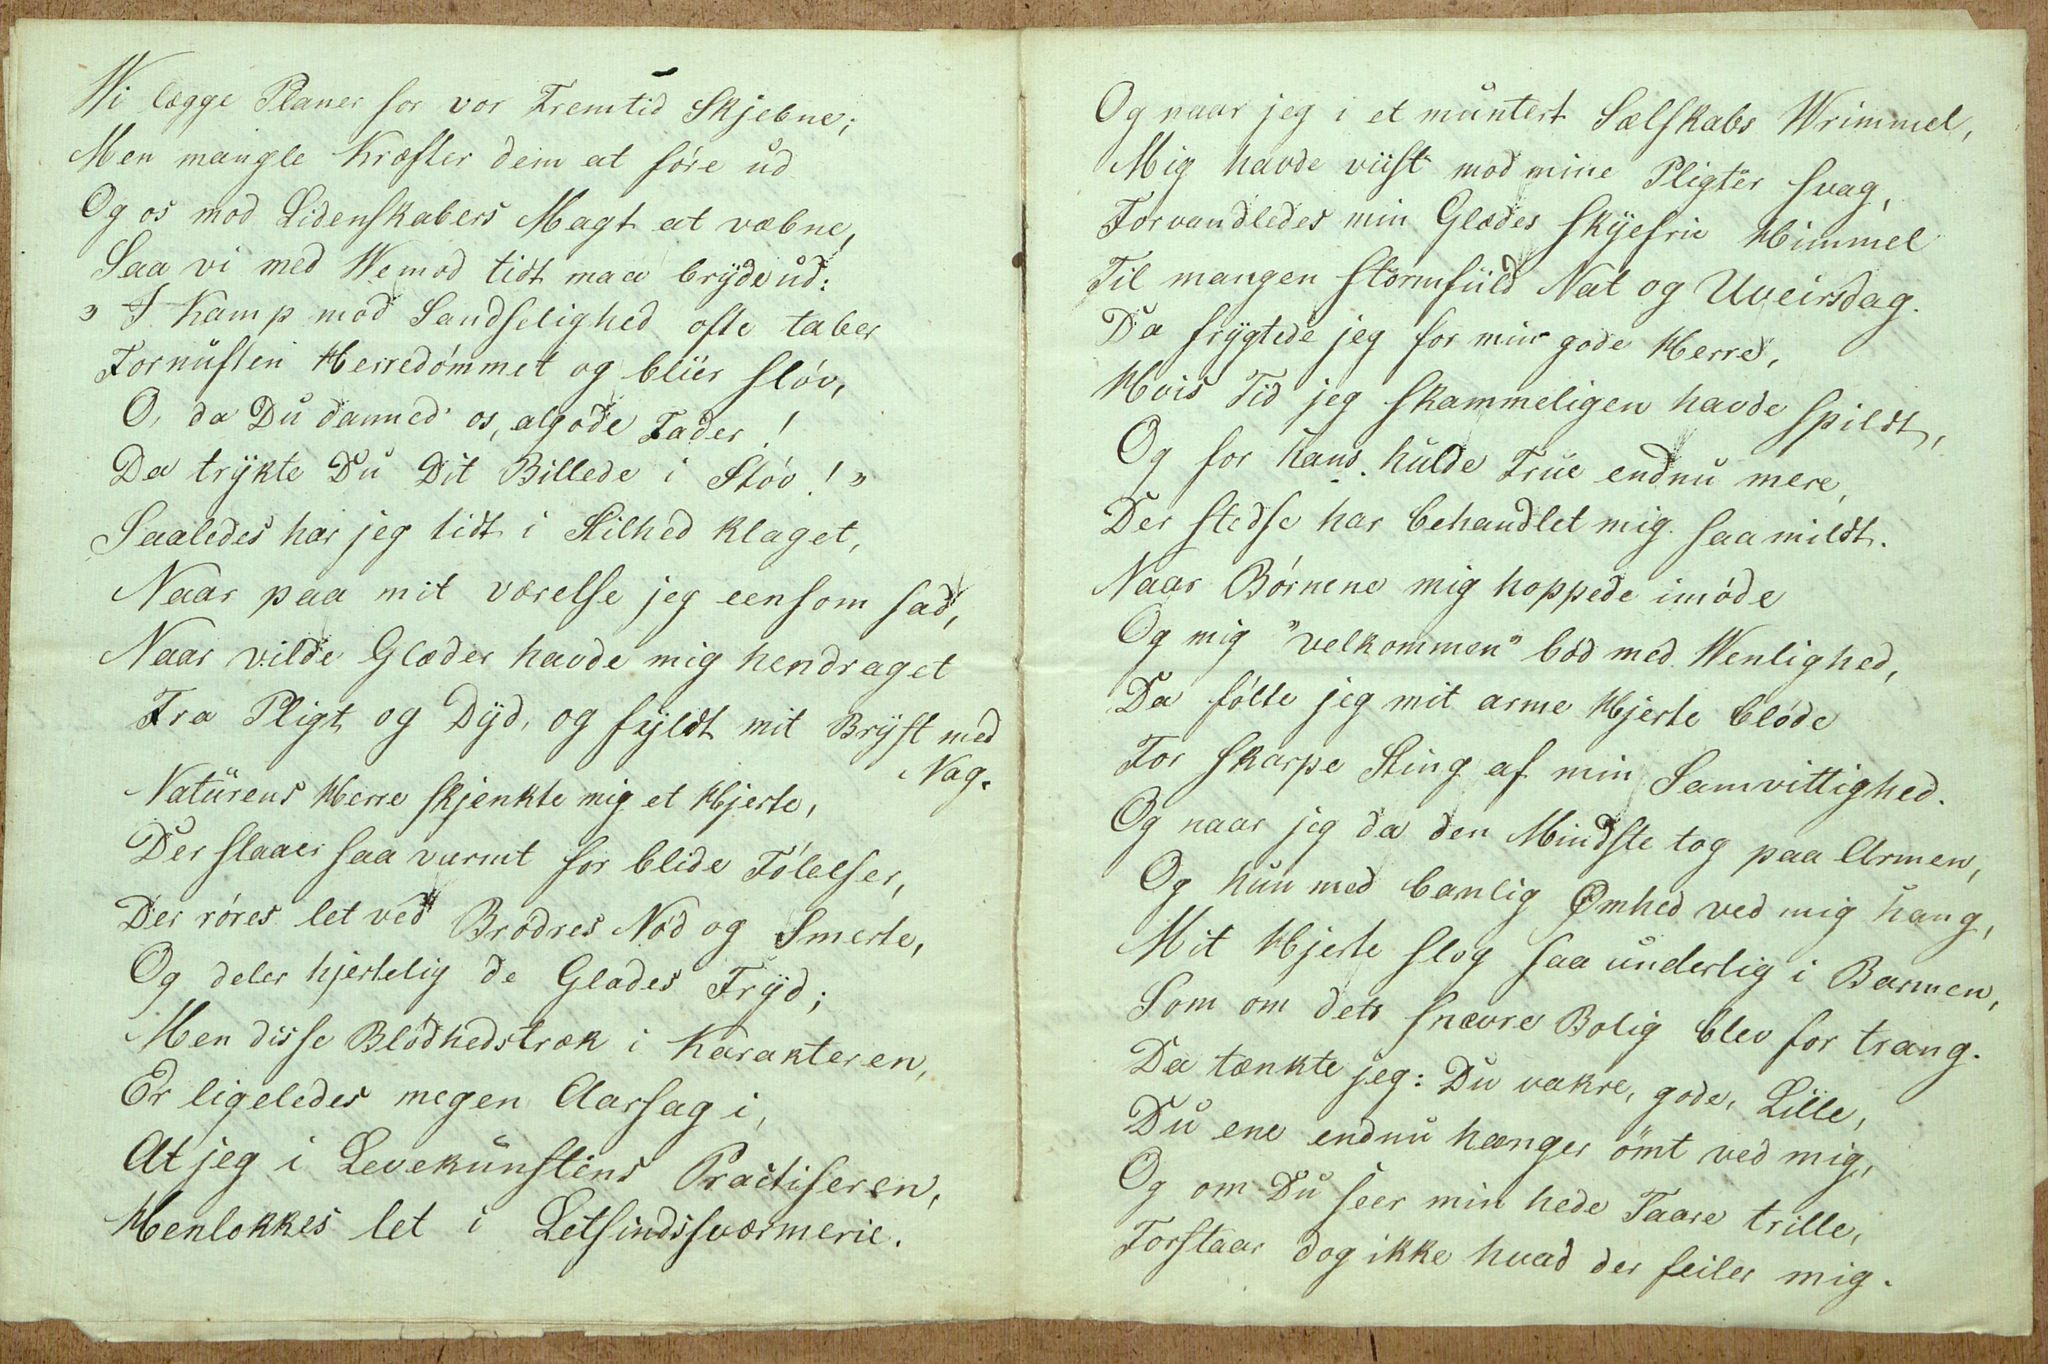 Wi lægge Planer for vor Fremtid Skjebne;
Men mangle Kræfter dem at føre ud
Og os mod Lidenskabers Magt at væbne,
Saa vi med Wemod tidt maa bryde ud:
" I Kamp mod Sandselighed ofte taber
Fornuften Herredømmet og bliier sløv,
O, da Du danned' os, algode Fader!
Da trykte Du Dit Billede i Støv! "
Saaledes har jeg tidt i Stilhed klaget,
Naar paa mit værelse jeg eensom sad,
Naar vilde Glæder havde mig hendraget
Fra Pligt og Dyd, og fyldt mit Bryst med
Nag.
Naturens Herre skjenkte mig et Hjerte,
Der slaaer saa varmt for blide Følelser,
Der røres let ved Brødres Nød og Smerte,
Og deler hjertelig de Glades Fryd;
Men disse Blødhedstræk i Karakteren,
Er ligeledes megen Aarsag i,
At jeg i Levekunstens Practiseren,
Henlokkes let i Letsindssværmerie.
Og naar jeg i et muntert Sælskabs Wrimmel,
Mig havde viist mod mine Pligter svag,
Forvandledes min Glædes skyefrie Himmel
Til mangen stormfuld Nat og Uveirsdag.
Da frygtede jeg for min gode Herre,
Hvis Tid jeg skammeligen havde spildt,
Og for hans hulde Frue endnu mere,
Der stedse har behandlet mig saa mildt.
Naar Børnene mig hoppede imøde
Og mig "velkommen" bød med Wenlighed,
Da følte jeg mit arme Hjerte bløde
For skarpe Sting af min Samvittighed.
Og naar jeg da den Mindste tog paa Armen,
Og hun med barnlig Ømhed ved mig hang,
Mit Hjerte slog saa underlig i Barmen,
Som om dets snævre Bolig blev for trang.
Da tænkte jeg: Du vakre, gode, Lille,
Du ene endnu hænger ömt ved mig,
Og om Du seer min hede Taare trille,
Forstaar dog ikke hvad der feiler mig.